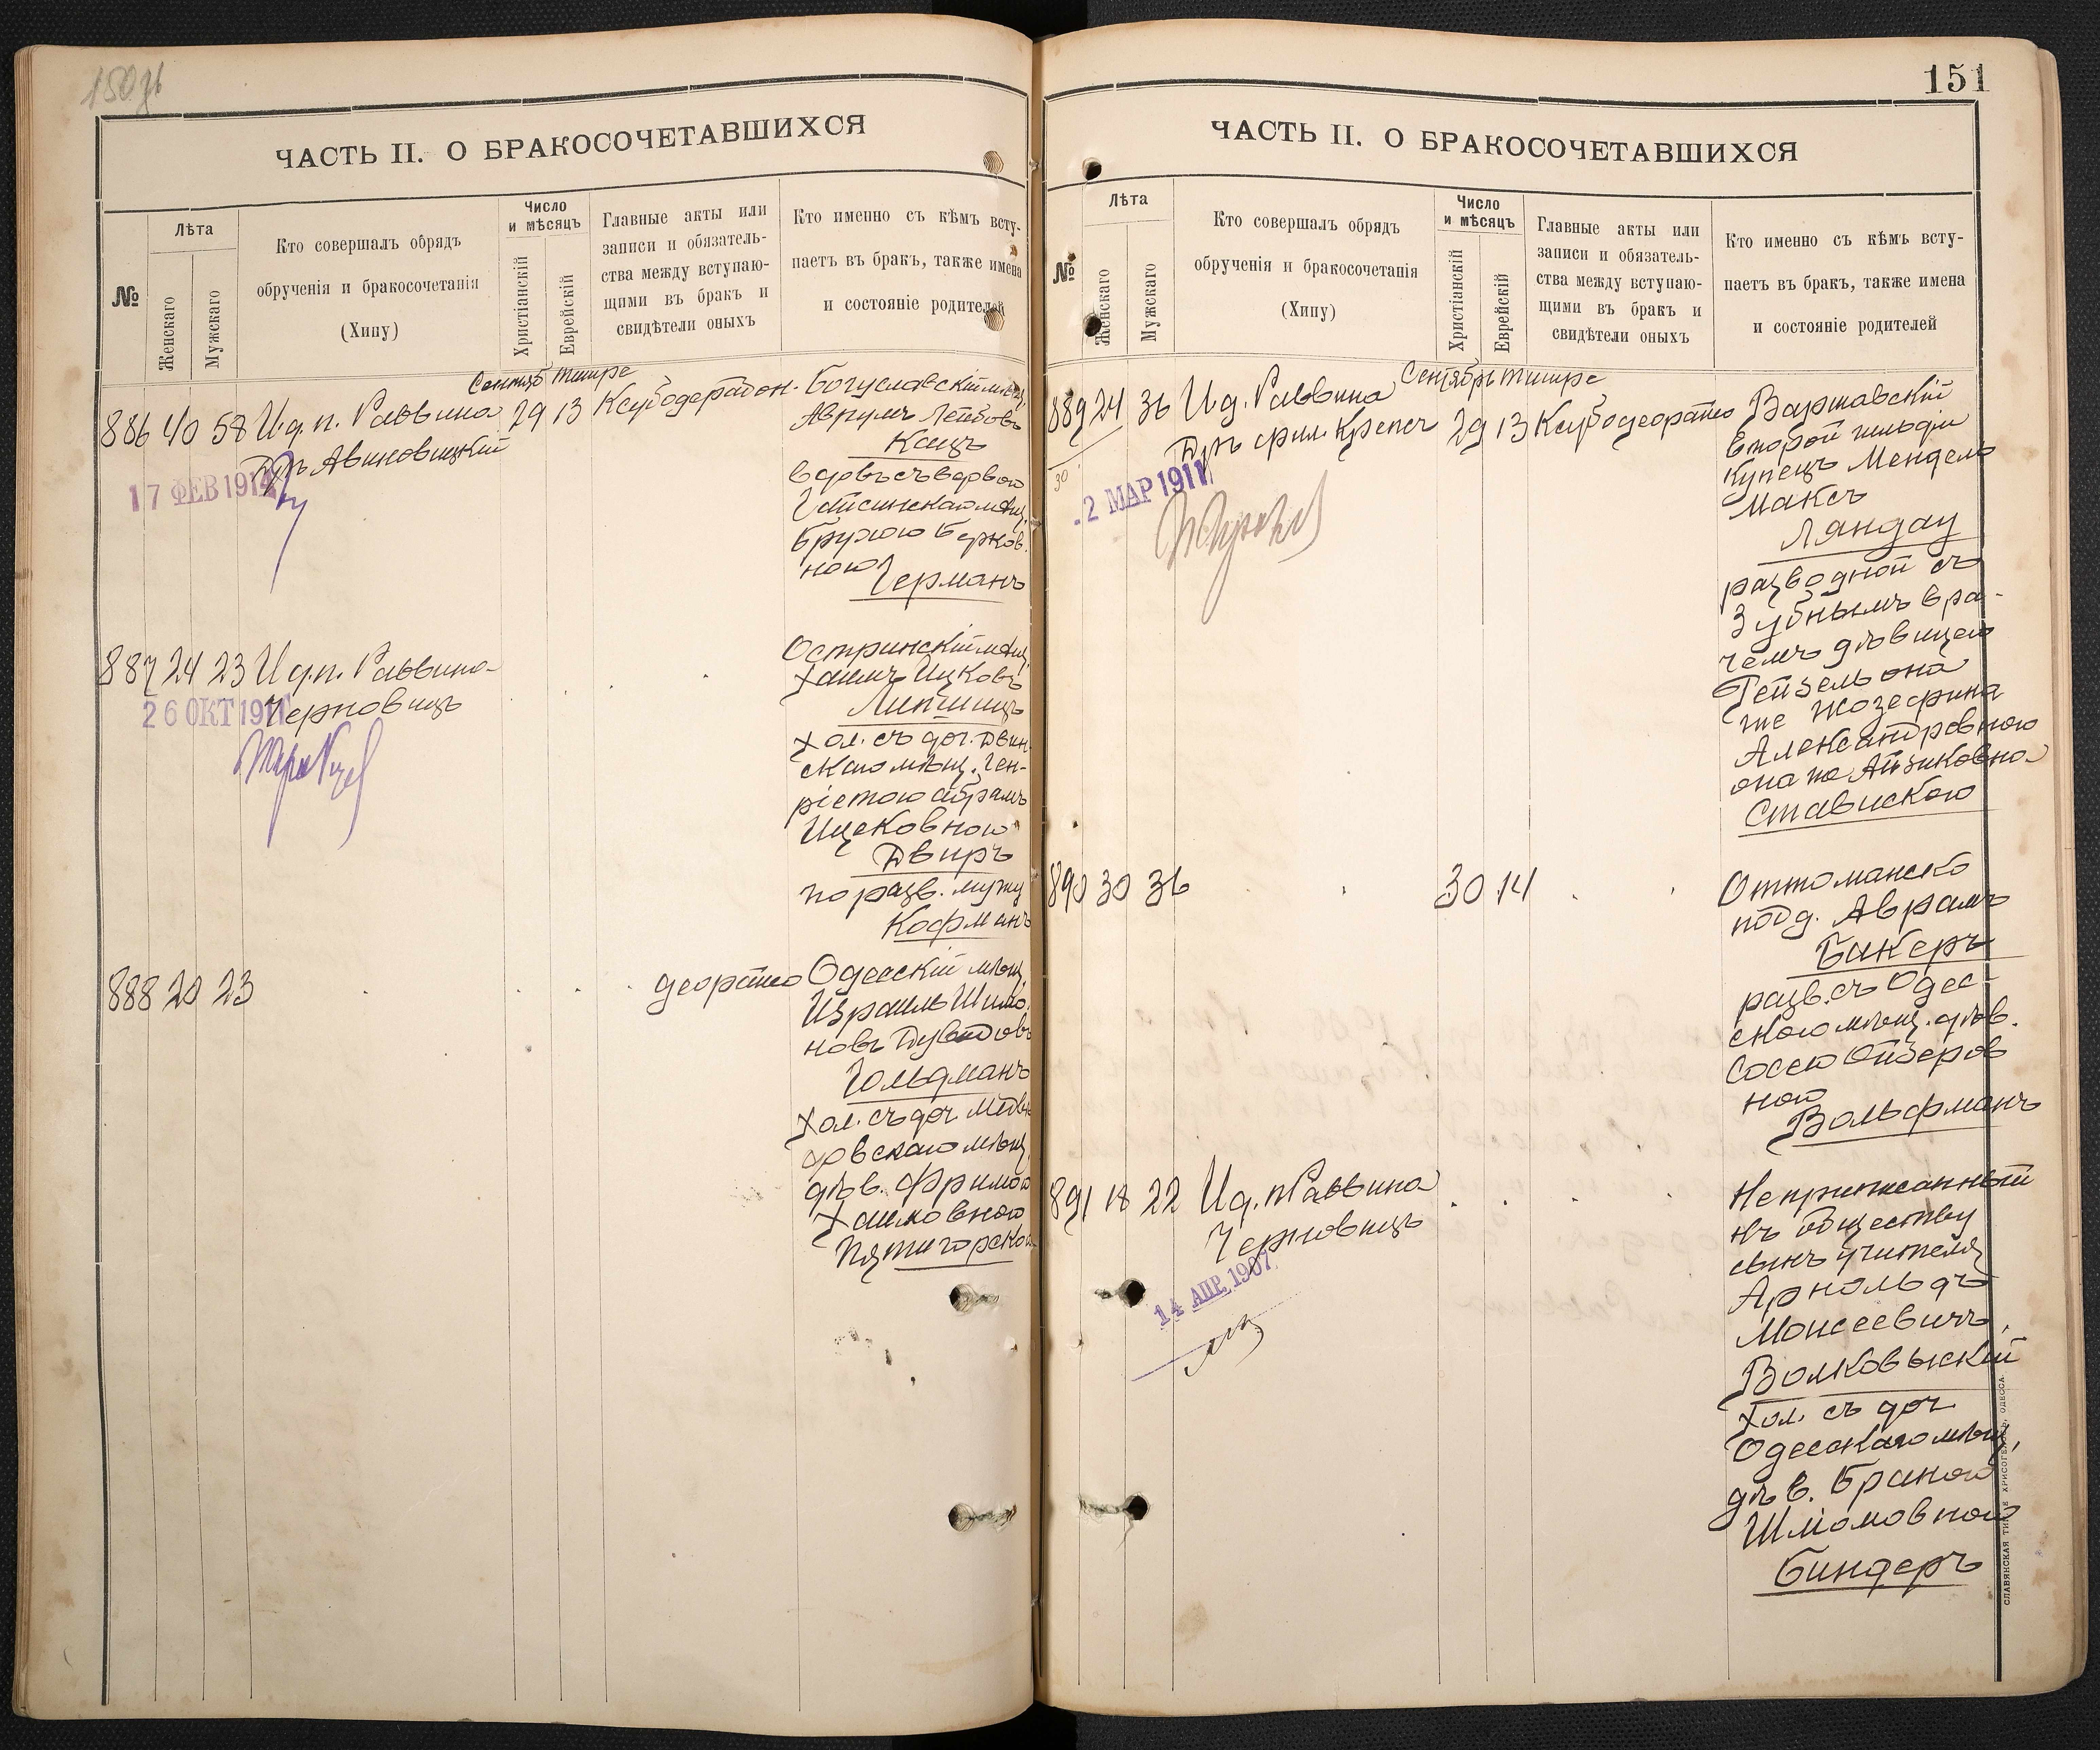 150 об
ЧАСТЬ II. О БРАКОСОЧЕТАВШИХСЯ
№
Лѣта
Женскаго
Мужскаго
Кто совершалъ обрядъ
обрученія и бракосочетанія
(Хипу)
Число
и мѣсяцъ
Христіанскій
Еврейскій
Главные акты или
записи и обязатель-
ства между вступаю-
щими въ бракъ и
свидѣтели оныхъ
Кто именно съ кѣмъ всту-
паетъ въ бракъ, также имена
и состояніе родителей
Сентяб Тишре
886 40 58 И.д.п. Раввина 29 13
Дръ Авиновицкій
17 ФЕВ 1914
Богуславскій мѣщ.
Аврумъ Лейбовъ
Кацъ
вдовъ съ вдовою
Гайсинскаго мѣщ.
Брухою Берков.
ною
Германъ
887 24 23 И.д.п. Раввина
Черновицъ
26 ОКТ 1911
Остринскій мѣщ.
Хаимъ Ицковъ
Липшицъ
хол. съ доч. Двин.
скаго мѣщ. Ген-
ріетою Абрамъ
Ицковною
Двиръ
по разв. мужу
Кофманъ
888 20 23
деорайсо
Одесскій мѣщ.
Израиль Шимо.
новъ Дувидовъ
Гольдманъ
хол. съ доч.
мѣщ.
дѣв. Фримою
Хаимовною
Пятигорскою
151
ЧАСТЬ II. О БРАКОСОЧЕТАВШИХСЯ
№
Лѣта
Женскаго
Мужскаго
Кто совершалъ обрядъ
обрученія и бракосочетанія
(Хипу)
Число
и мѣсяцъ
Христіанскій
Еврейскій
Главные акты или
записи и обязатель-
ства между вступаю-
щими въ бракъ и
свидѣтели оныхъ
Кто именно съ кѣмъ всту-
паетъ въ бракъ, также имена
и состояніе родителей
Сентябрь Тишре
889 24 36 И.д. Раввина 29 13 Ксубодеорайсо
Дръ фил. Крепсъ
30
2 МАР 1911
Варшавскій
второй гильдіи
купецъ Мендель
Максъ
Ляндау
разводной съ
Зубнымъ вра-
чемъ дѣвицею
Рейзель она
же Жозефина
Александровною
она же Айзиковно
Ставискою
890 30 36 30 14
Оттоманско
подд. Аврамъ
Бакеръ
разв. съ Одес-
скою мѣщ. дѣв.
Сосею Ойзеров
ной
Вольфманъ
891 18 22 И.д.п Раввина
Черновицъ
14 АПР. 1907
Неприписанный
къ обществу
сынъ учителя
Арнольдъ
Моисеевичъ
Волковыскій
хол. съ доч
Одесскаго мѣщ,
дѣв. Браною
Шліомовною
Биндеръ